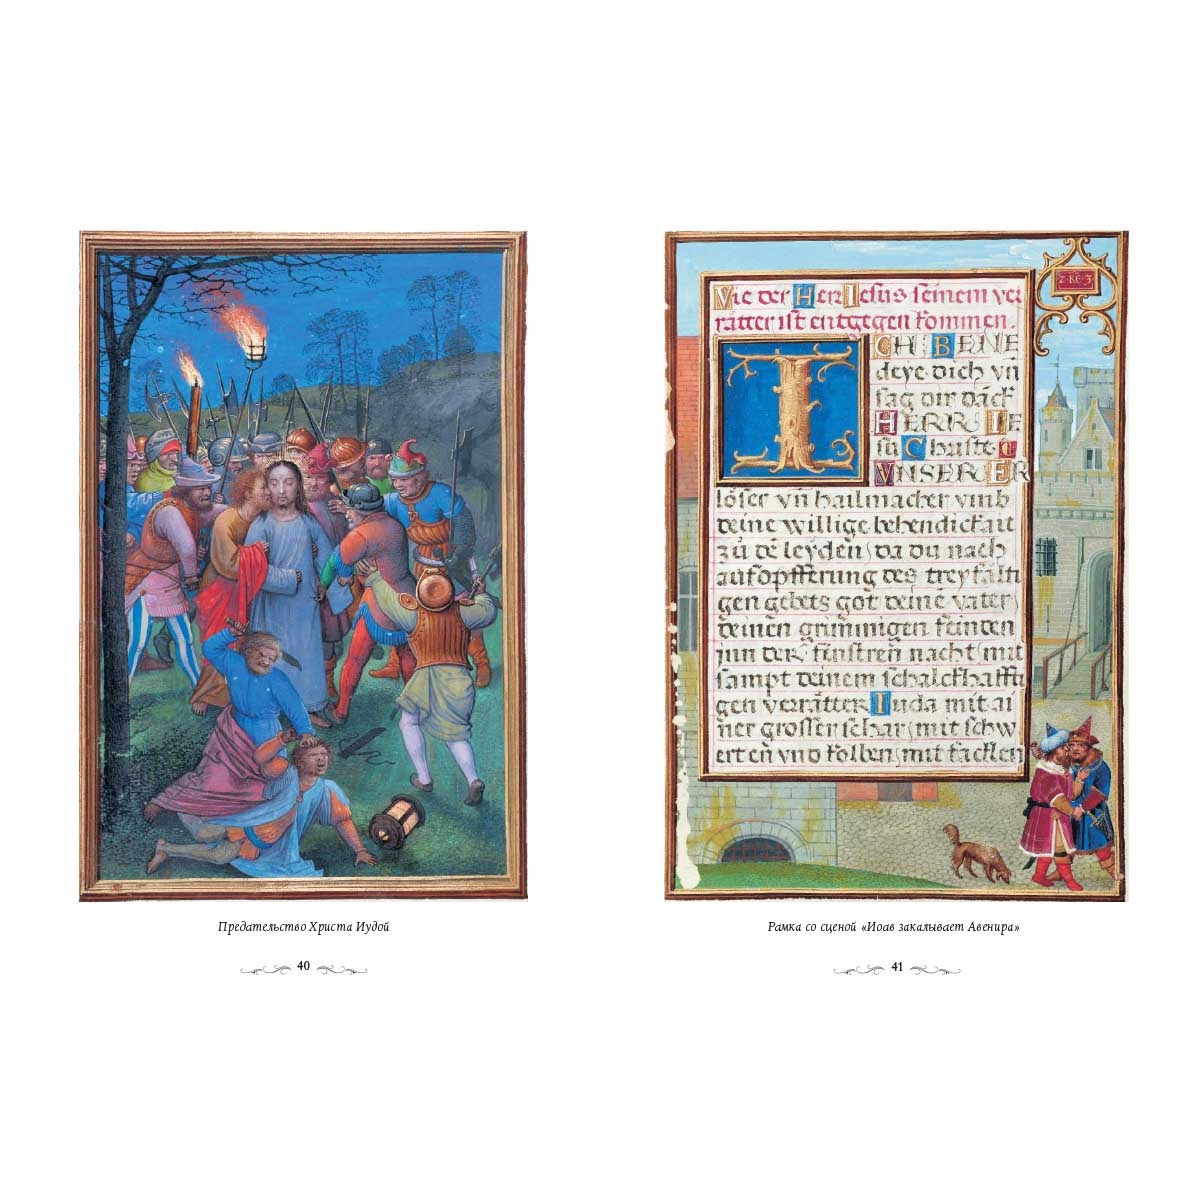 Предательство Христа Иудой
40
2·RE·3
Vie der Herr Iesus seinem ver
rätter ist entgegen kommen.
ICH BENE
deye dich vn̄
sag dir dāck
HERR IE
sū Christe
VNSER ER
löser vn̄ hailmacher vmb
deine willige behendickait
zů dē leyden, da du nach
aufopfferung des treyfalti
gen gebets got deinē vater,
deinen grimmigen feinden
inn der finstren nacht, mit
sampt deinem schalckhaffti
gen verrätter Iuda mit ai
ner grossen schar, mit schw
ertē vnd kolben, mit facklen
Рамка со сценой «Иоав закалывает Авенира»
41